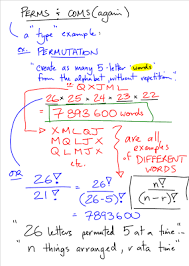 PERMS & COMS (again)
a "type" example:
or PERMUTATION
"create as many 5-letter words
from the alphabet without repetition"
Q X J M L
26 × 25 × 24 × 23 × 22
= 7 893 600 words
X M L Q J
M Q L J X
Q L M J X
etc.
are all
examples
of DIFFERENT
WORDS
OR
26! / 21! = 26! / (26-5)! n! / (n-r)!
= 7893600
"26 letters permuted 5 at a time...
"n things arranged, r at a time"